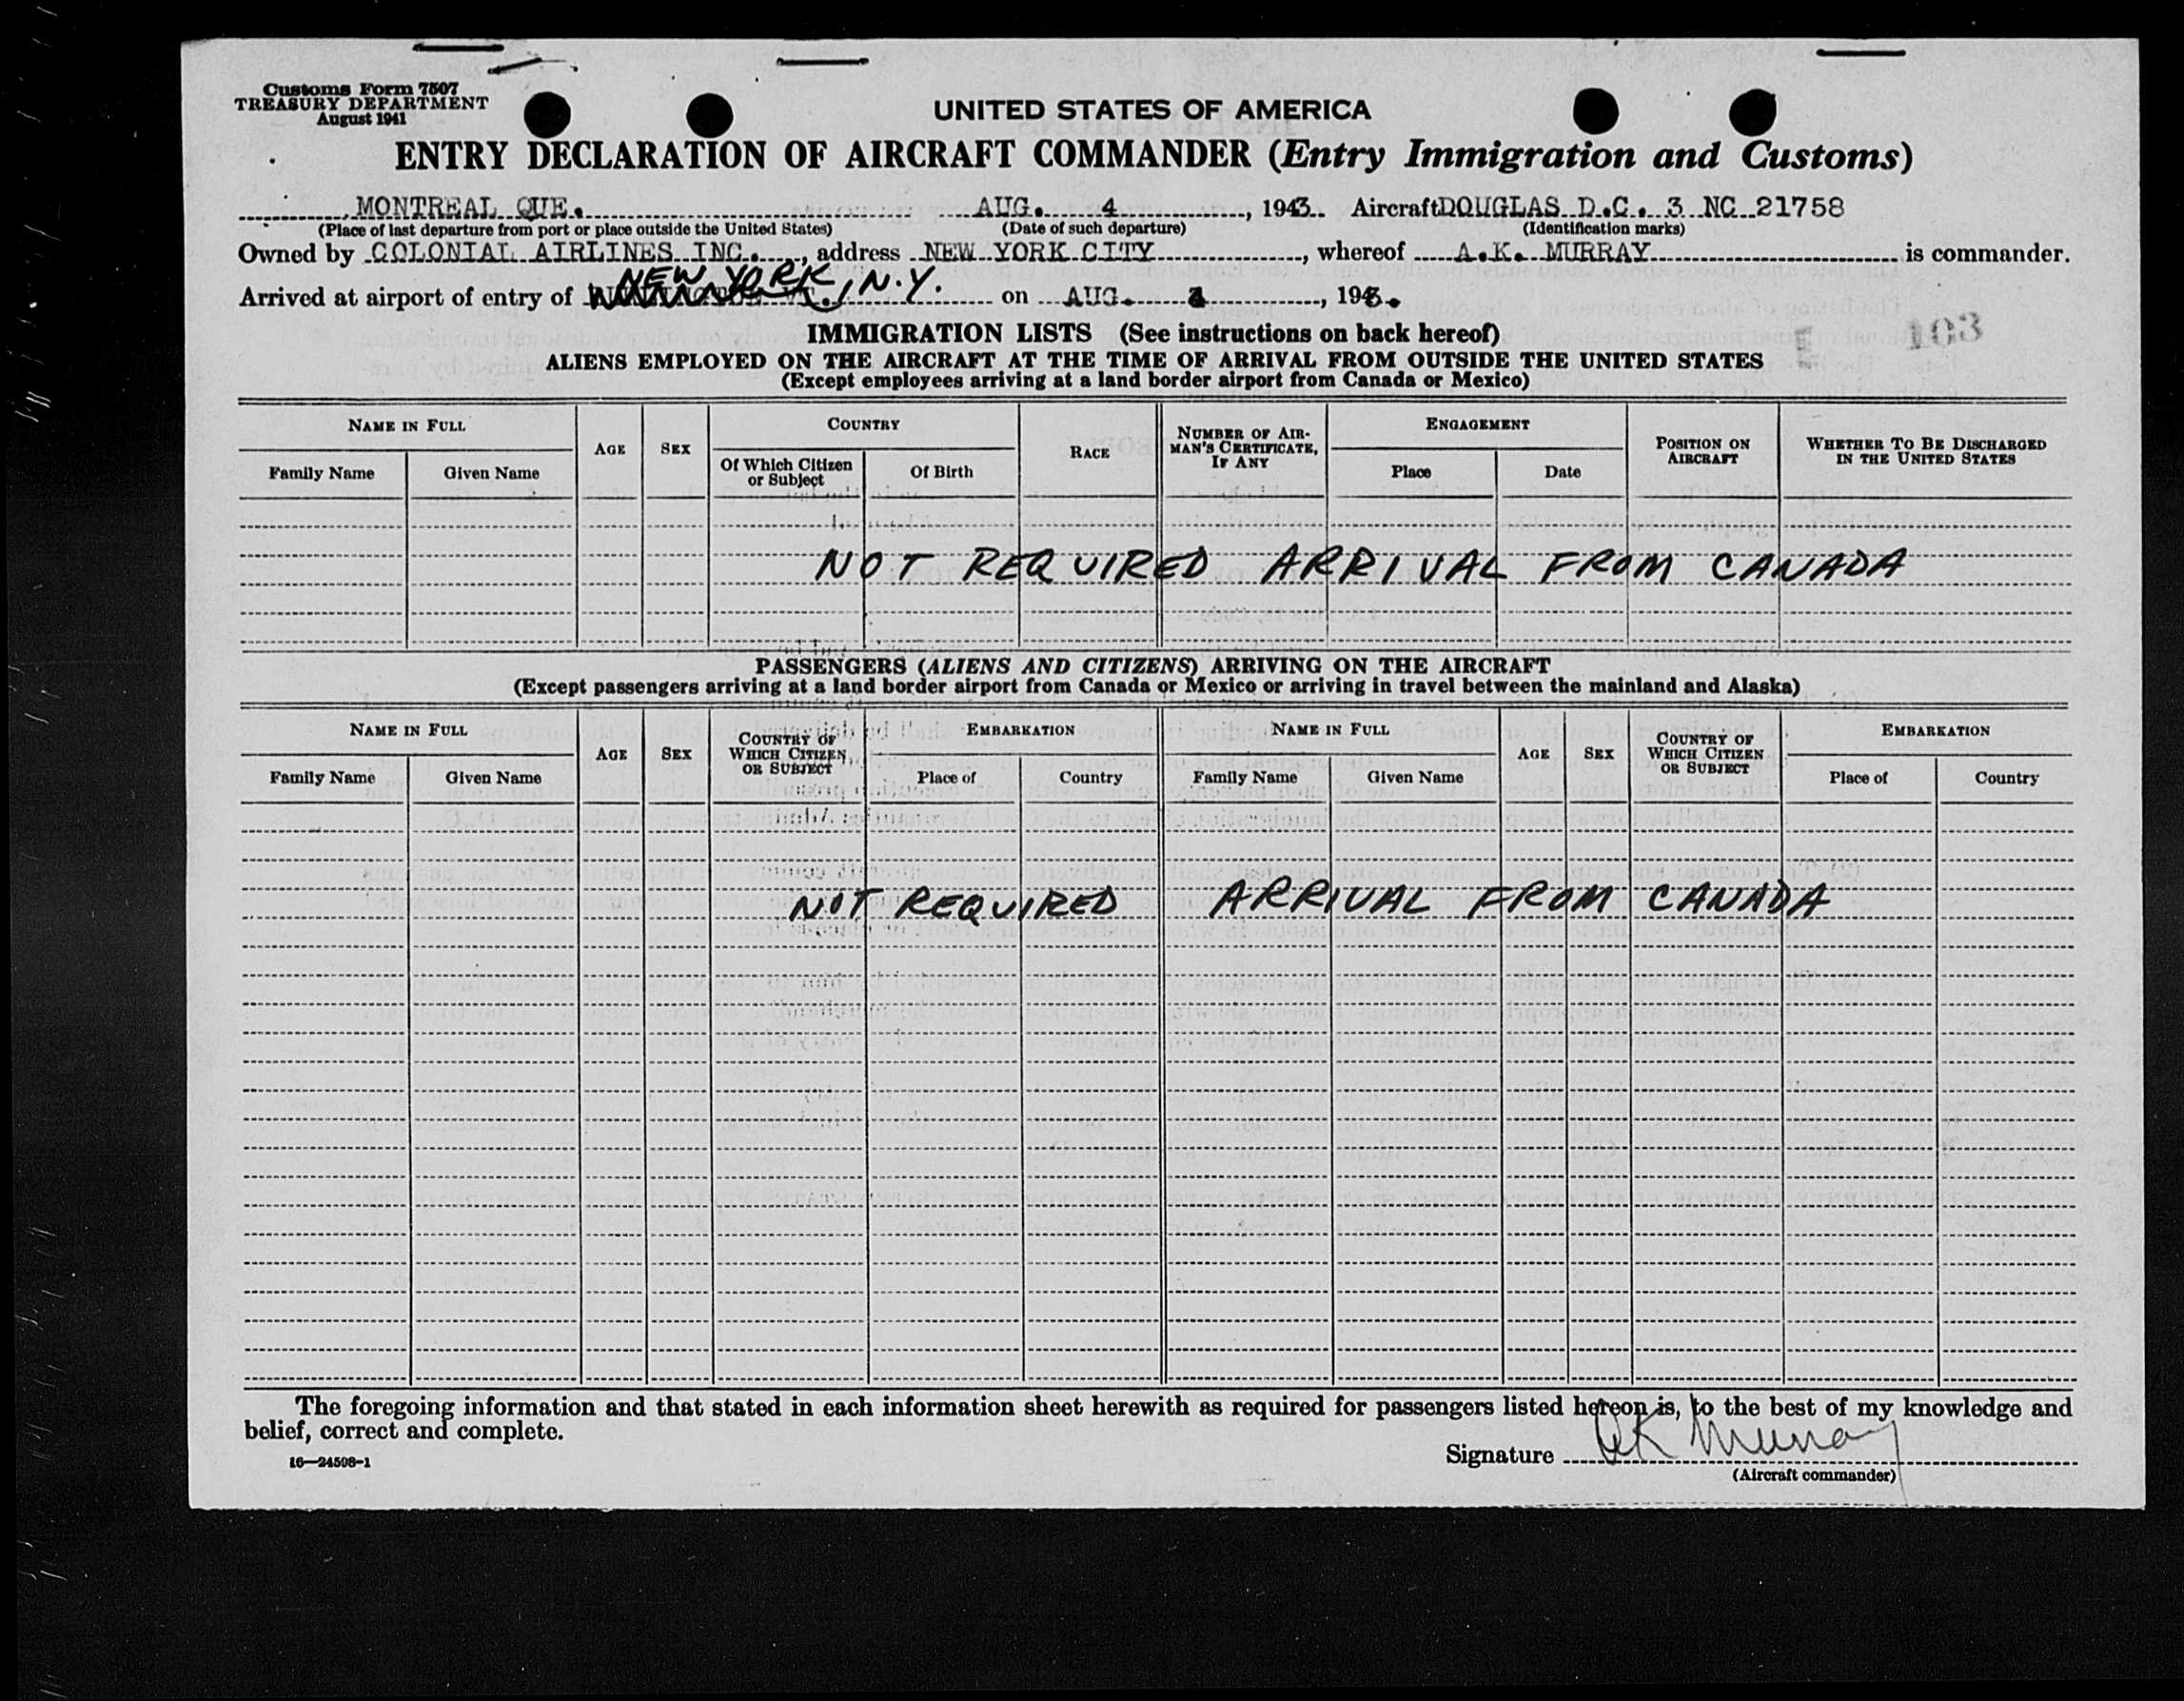 Customs Form 7507
TREASURY DEPARTMENT
August 1941
UNITED STATES OF AMERICA
ENTRY DECLARATION OF AIRCRAFT COMMANDER (Entry Immigration and Customs)
MONTREAL QUE. AUG. 4, 1943. Aircraft DOUGLAS D.C. 3 NC 21758
(Place of last departure from port or place outside the United States) (Date of such departure) (Identification marks)
Owned by COLONIAL AIRLINES INC., address NEW YORK CITY, whereof A.K. MURRAY is commander.
Arrived at airport of entry of NEW YORK, N.Y. on AUG., 194
IMMIGRATION LISTS (See instructions on back hereof)
103
ALIENS EMPLOYED ON THE AIRCRAFT AT THE TIME OF ARRIVAL FROM OUTSIDE THE UNITED STATES
(Except employees arriving at a land border airport from Canada or Mexico)
NAME IN FULL AGE SEX COUNTRY RACE NUMBER OF AIRMAN'S CERTIFICATE, IF ANY ENGAGEMENT POSITION ON AIRCRAFT WHETHER TO BE DISCHARGED IN THE UNITED STATES
Family Name Given Name Of Which Citizen or Subject Of Birth Place Date
NOT REQUIRED ARRIVAL FROM CANADA
PASSENGERS (ALIENS AND CITIZENS) ARRIVING ON THE AIRCRAFT
(Except passengers arriving at a land border airport from Canada or Mexico or arriving in travel between the mainland and Alaska)
NAME IN FULL AGE SEX COUNTRY OF WHICH CITIZEN OR SUBJECT EMBARKATION NAME IN FULL AGE SEX COUNTRY OF WHICH CITIZEN OR SUBJECT EMBARKATION
Family Name Given Name Place of Country Family Name Given Name Place of Country
NOT REQUIRED ARRIVAL FROM CANADA
The foregoing information and that stated in each information sheet herewith as required for passengers listed hereon is, to the best of my knowledge and
belief, correct and complete.
Signature AK Murray
16—24508-1
(Aircraft commander)